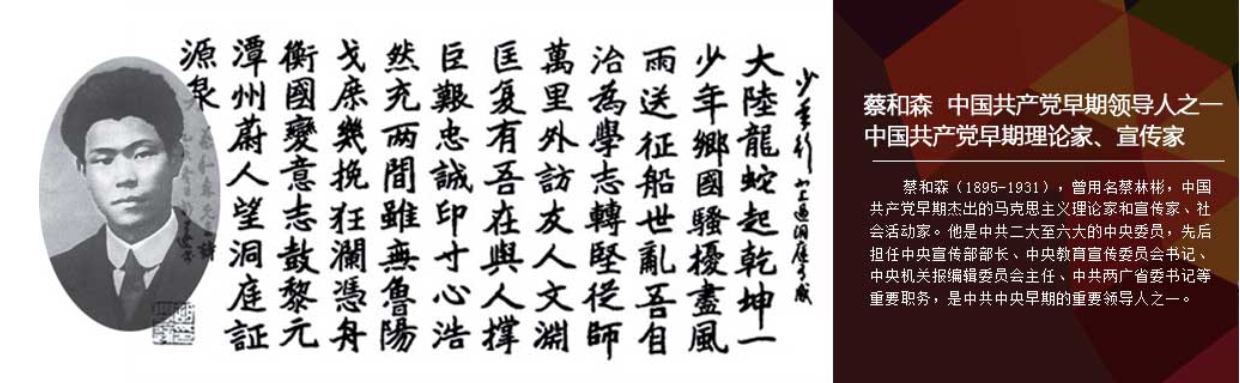 少年行 北上過洞庭有感
大陸龍蛇起乾坤一
少年鄉國騷擾盡風
雨送征船世亂吾自
治為學志轉堅從師
萬里外訪友人文淵
匡复有吾在與人撐
巨艱忠誠印寸心浩
然充兩間雖無魯陽
戈庶幾挽狂瀾憑舟
衡國變意志鼓黎元
潭州蔚人望洞庭証
源泉
蔡和森 中国共产党早期领导人之一
中国共产党早期理论家、宣传家
蔡和森（1895-1931），曾用名蔡林彬，中国
共产党早期杰出的马克思主义理论家和宣传家、社
会活动家。他是中共二大至六大的中央委员，先后
担任中央宣传部部长、中央教育宣传委员会书记、
中央机关报编辑委员会主任、中共两广省委书记等
重要职务，是中共中央早期的重要领导人之一。